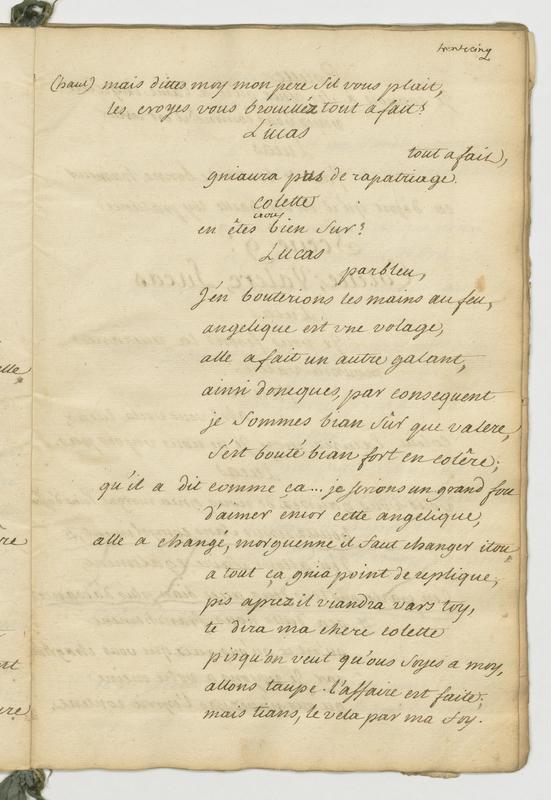 trente cinq
(haut) mais dittes moy mon pere s'il vous plait,
les croyes vous brouilléz tout a fait?
Lucas
tout a fait,
gniaura pas de rapatriage.
colette
en étes vous bien sur?
Lucas
parbleu,
J'en bouterions les mains au feu,
angelique est vne volage,
alle a fait un autre galant,
ainsi doncques, par consequent
je sommes bian sûr que valere,
s'est bouté bian fort en colére;
qu'il a dit comme ça... je serions un grand fou
d'aimer encor cette angelique,
alle a changé, morguenne il faut changer itou
a tout ça gnia point de replique,
pis aprez il viandra vars toy,
te dira ma chere colette
pisqu'on veut qu'ous soyes a moy,
allons taupe. l'affaire est faite;
mais tians, le vela par ma foy.
elle
re
nt
ure